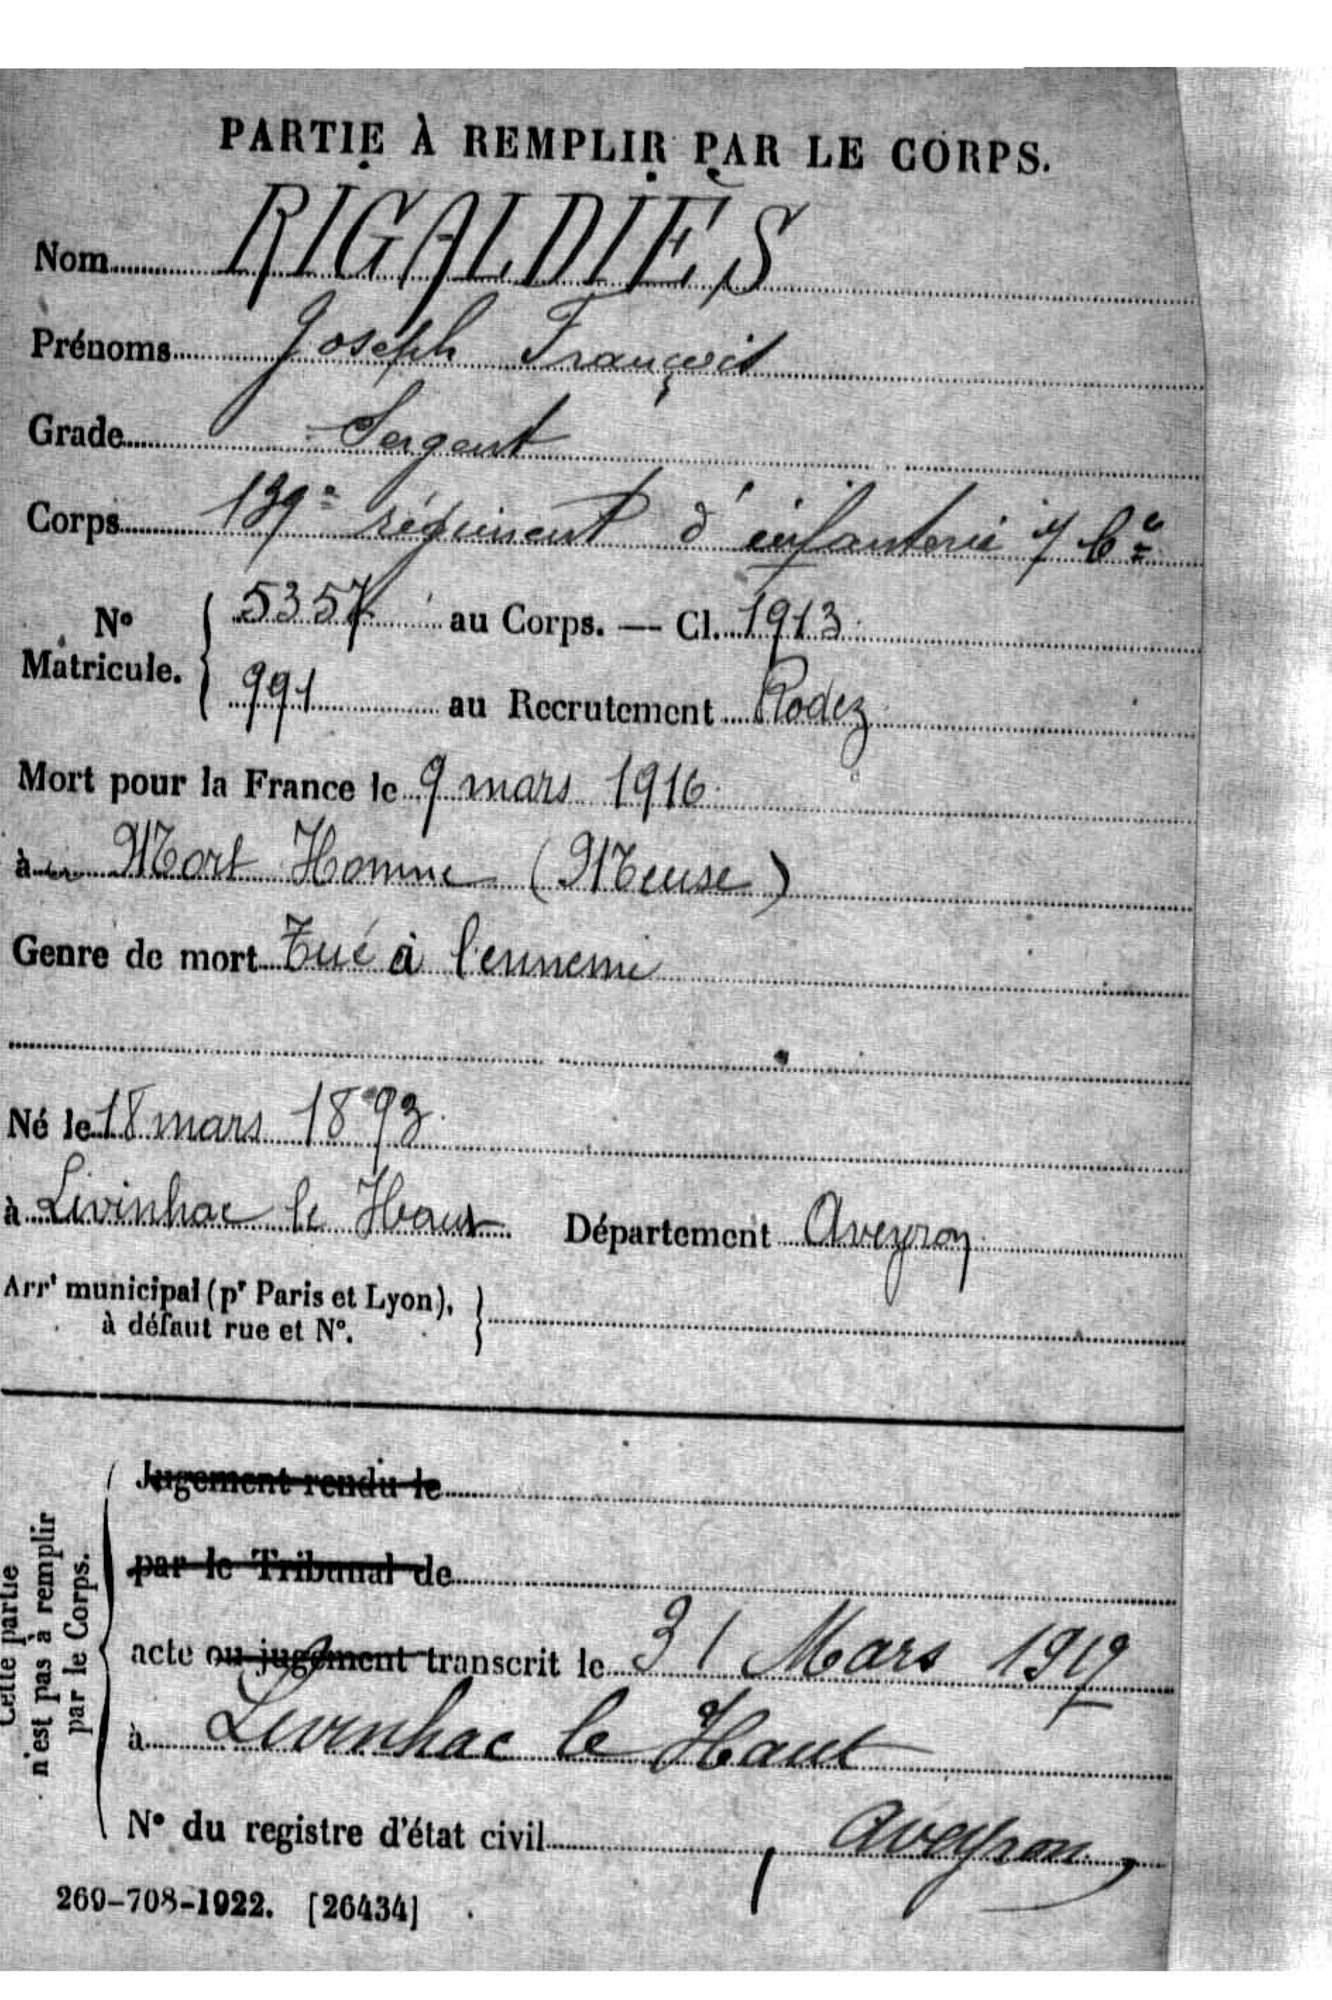 PARTIE À REMPLIR PAR LE CORPS.
Nom RIGALDIÈS
Prénoms Joseph François
Grade Sergent
Corps 139e régiment d'infanterie 7 Cie
No Matricule. { 5357 au Corps. — Cl. 1913
991 au Recrutement Rodez
Mort pour la France le 9 mars 1916
à Mort Homme (Meuse)
Genre de mort Tué à l'ennemi
Né le 18 mars 1893
à Livinhac le Haut Département Aveyron
Arrt municipal (pr Paris et Lyon),
à défaut rue et No.
Cette partie
n'est pas à remplir
par le Corps.
Jugement rendu le
par le Tribunal de
acte ou jugement transcrit le 31 Mars 1919
à Livinhac le Haut
No du registre d'état civil Aveyron
269-708-1922. [26434]